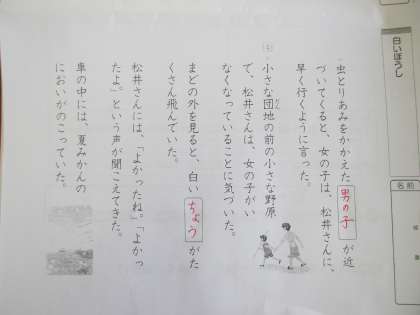 白いぼうし
名前
虫とりあみをかかえた男の子が近
づいてくると、女の子は、松井さんに、
早く行くように言った。
小さな団地の前の小さな野原
で、松井さんは、女の子がい
なくなっていることに気づいた。
まどの外を見ると、白いちょうがた
くさん飛んでいた。
松井さんには、「よかったね。」「よかっ
たよ。」という声が聞こえてきた。
車の中には、夏みかんの
においがのこっていた。